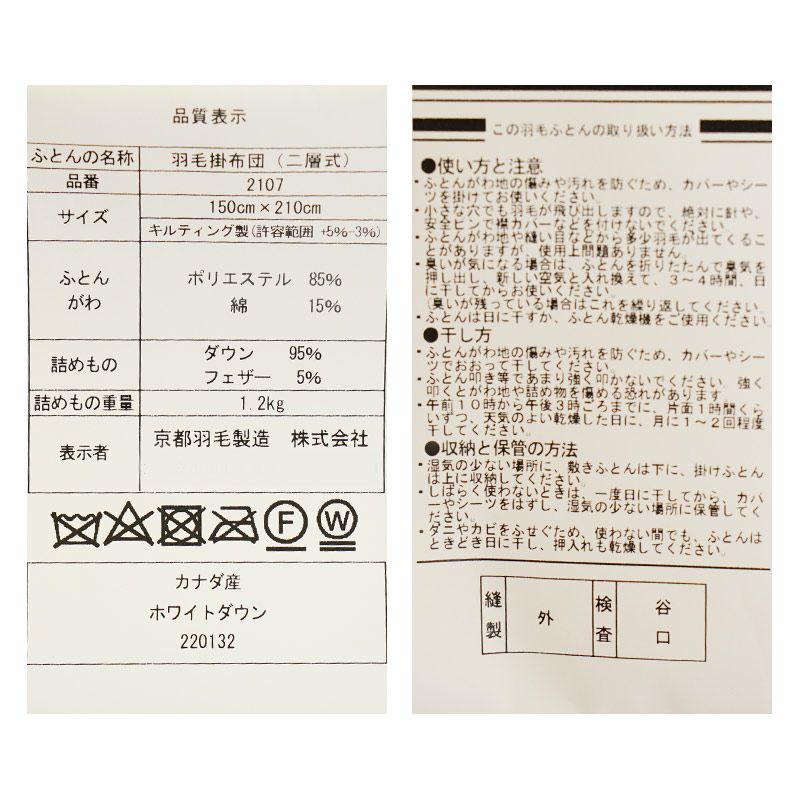 品質表示
ふとんの名称 羽毛掛布団(二層式)
品番 2107
サイズ 150cm×210cm
キルティング製(許容範囲 +5%-3%)
ふとん
がわ
ポリエステル 85%
綿 15%
詰めもの
ダウン 95%
フェザー 5%
詰めもの重量 1.2kg
表示者 京都羽毛製造 株式会社
F W
カナダ産
ホワイトダウン
220132
この羽毛ふとんの取り扱い方法
●使い方と注意
・ふとんがわ地の傷みや汚れを防ぐため、カバーやシー
ツを掛けてお使いください。
・小さな穴でも羽毛が飛び出しますので、絶対に針や、
安全ピンで襟カバーなどを付けないでください。
・ふとんがわ地や縫い目などから多少羽毛が出てくるこ
とがありますが、使用上問題ありません。
・臭いが気になる場合は、ふとんを折りたたんで臭気を
押し出し、新しい空気と入れ換えて、3〜4時間、日
に干してからお使いください。
(臭いが残っている場合はこれを繰り返してください。)
・ふとんは日に干すか、ふとん乾燥機をご使用ください。
●干し方
・ふとんがわ地の傷みや汚れを防ぐため、カバーやシー
ツでおおって干してください。
・ふとん叩き等であまり強く叩かないでください。強く
叩くとがわ地や詰め物を傷める恐れがあります。
・午前10時から午後3時ごろまでに、片面1時間くら
いずつ、天気のよい乾燥した日に、月に1〜2回程度
干してください。
●収納と保管の方法
・湿気の少ない場所に、敷きふとんは下に、掛けふとん
は上に収納してください。
・しばらく使わないときは、一度日に干してから、カバ
ーやシーツをはずし、湿気の少ない場所に保管してく
ださい。
・ダニやカビをふせぐため、使わない間でも、ふとんは
ときどき日に干し、押入れも乾燥してください。
縫製 外 検査 谷口